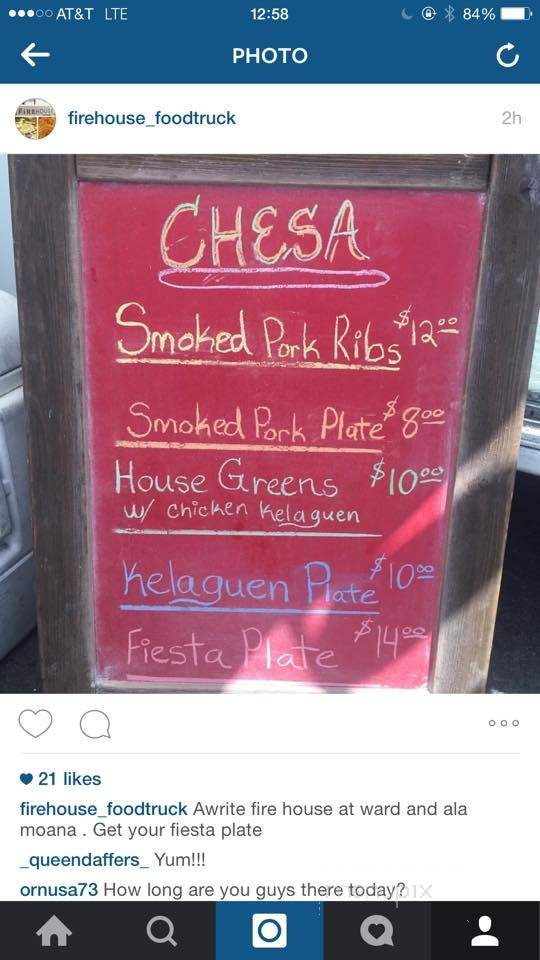 AT&T LTE 12:58 84%
PHOTO
FIREHOUSE
firehouse_foodtruck 2h
CHESA
Smoked Pork Ribs $12.00
Smoked Pork Plate $8.00
House Greens $10.00
w/ chicken Kelaguen
Kelaguen Plate $10.00
Fiesta Plate $14.00
21 likes
firehouse_foodtruck Awrite fire house at ward and ala
moana . Get your fiesta plate
_queendaffers_ Yum!!!
ornusa73 How long are you guys there today?